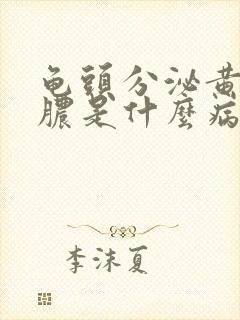 龟頭分泌黄
膿是什麼病
李沫夏